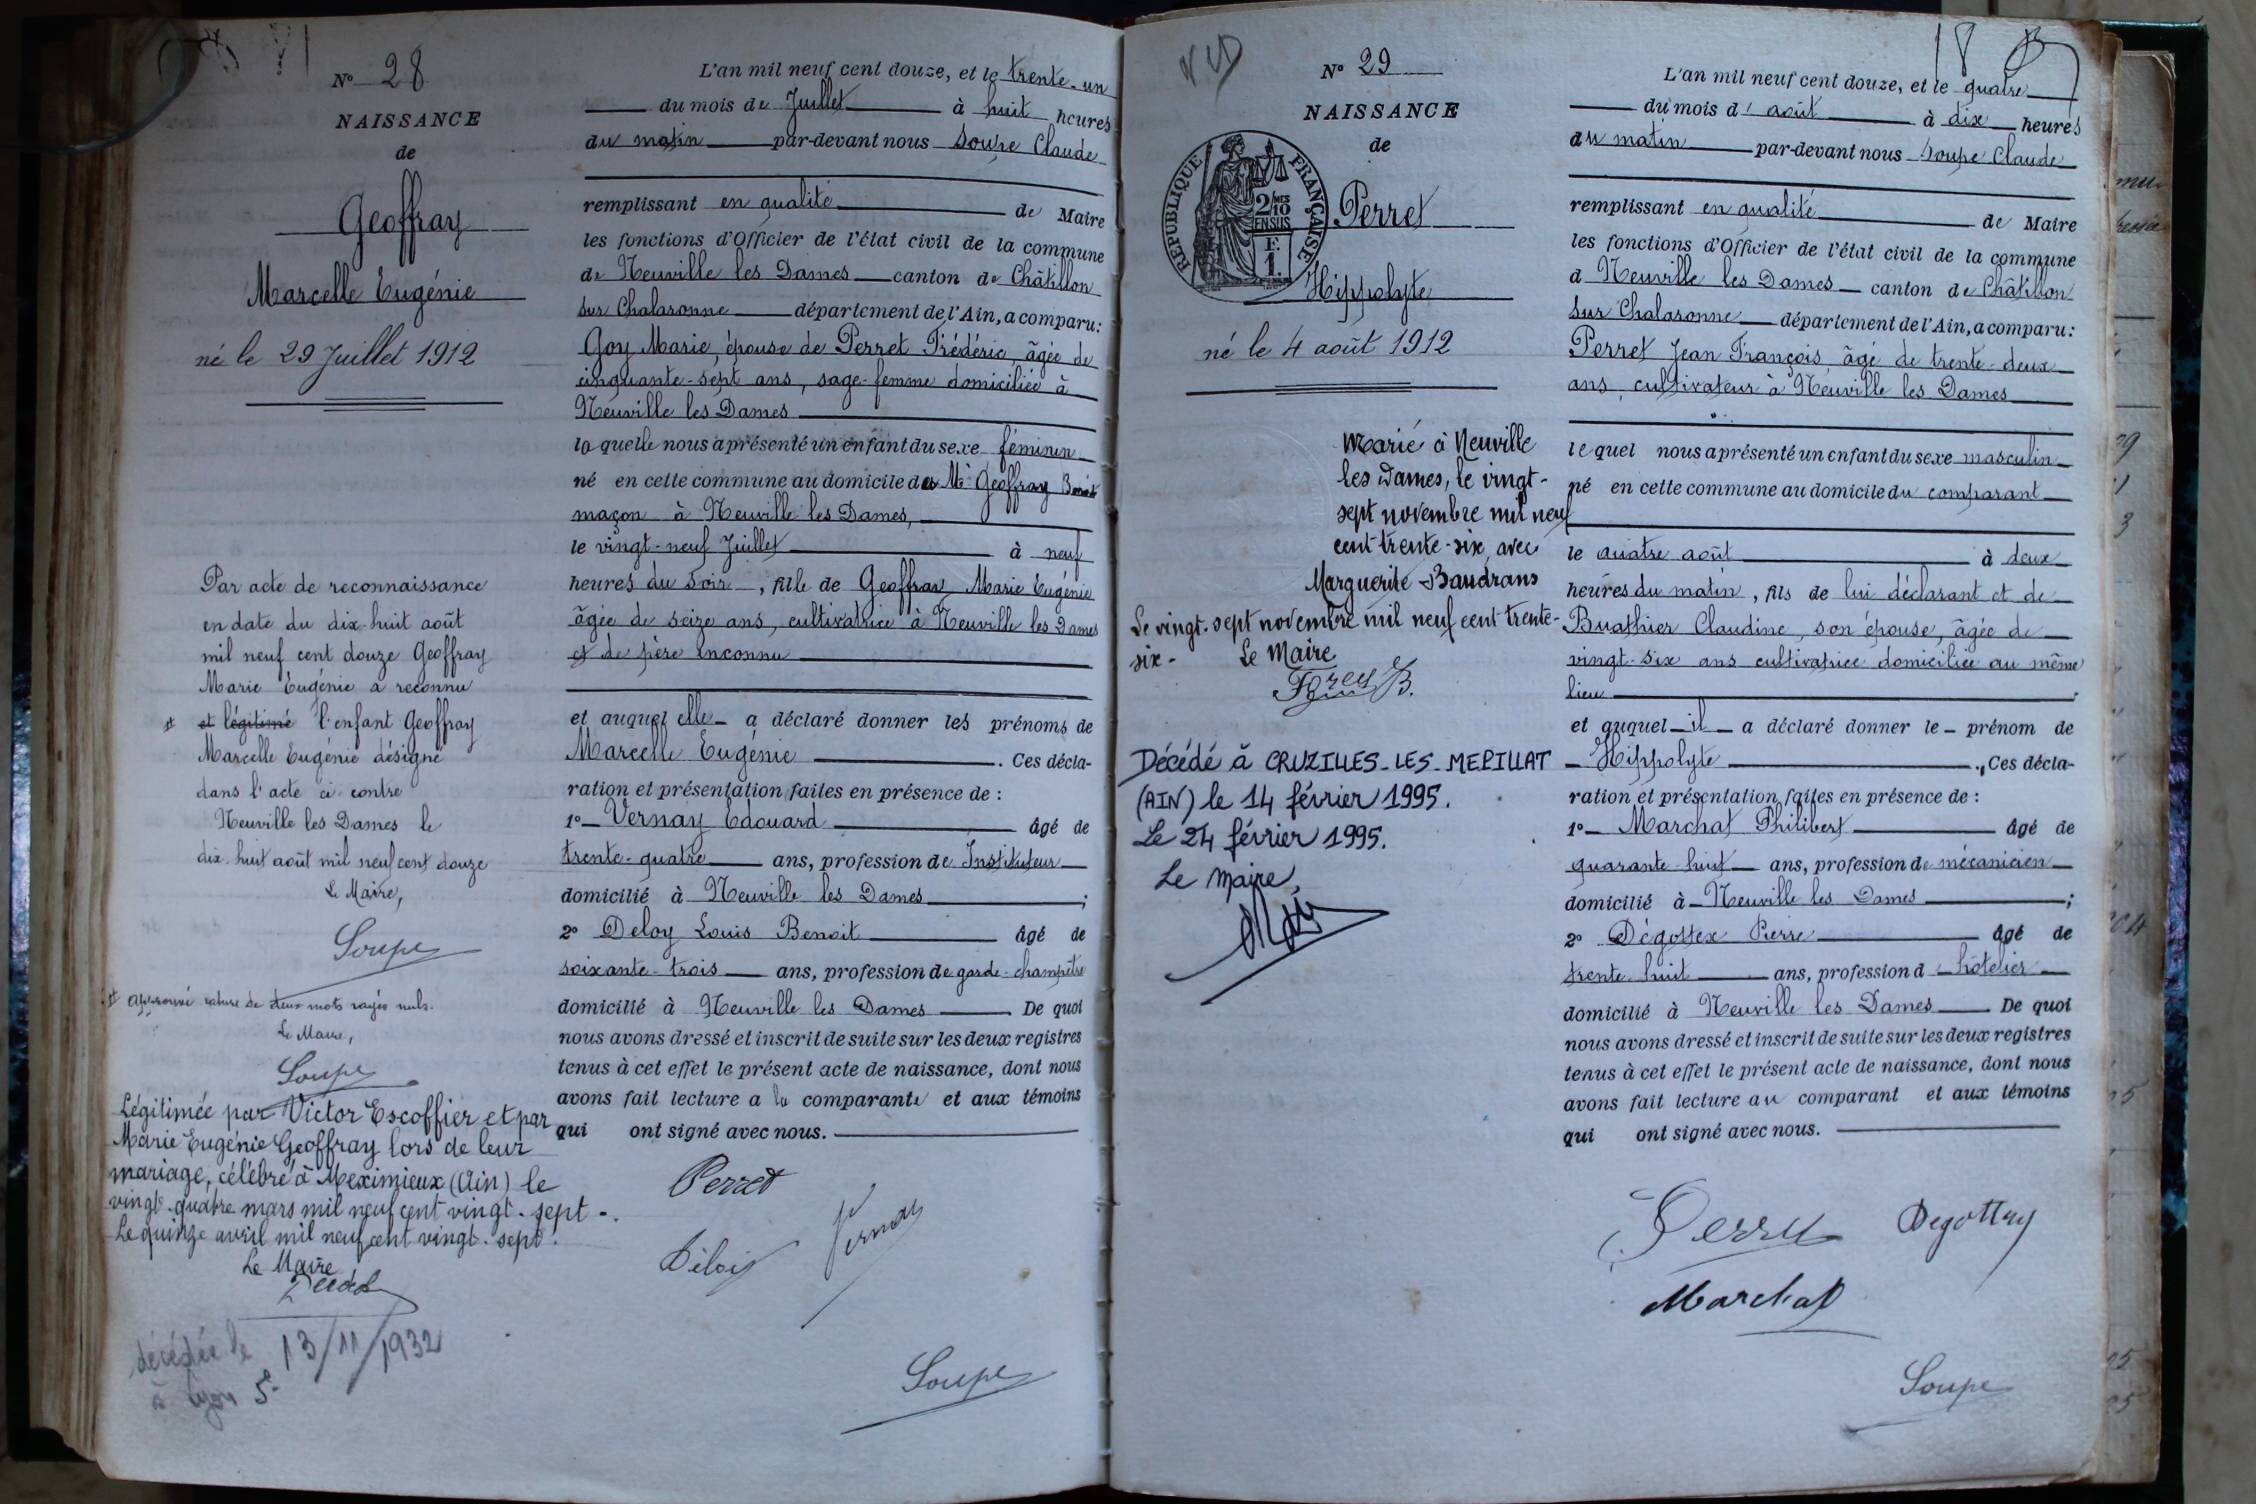 N° 28
NAISSANCE
de
Geoffray
Marcelle Eugénie
né le 29 Juillet 1912
Par acte de reconnaissance
en date du dix-huit août
mil neuf cent douze Geoffray
Marie Eugénie a reconnu
et légitimé l'enfant Geoffray
Marcelle Eugénie désigné
dans l'acte ci-contre
Neuville les Dames le
dix-huit août mil neuf cent douze
Le Maire,
Soupe
Approuvé rature de deux mots rayés nuls.
Le Maire,
Soupe
Légitimée par Victor Escoffier et par
Marie Eugénie Geoffray lors de leur
mariage, célébré à Meximieux (Ain) le
vingt-quatre mars mil neuf cent vingt-sept-.
Le quinze avril mil neuf cent vingt-sept.
Le Maire
décédée le 13/11/1932
à Lyon 5e
L'an mil neuf cent douze, et le trente-un
du mois de Juillet à huit heures
du matin par-devant nous Soupe Claude
remplissant en qualité de Maire
les fonctions d'Officier de l'état civil de la commune
de Neuville les Dames canton de Châtillon
sur Chalaronne département de l'Ain, a comparu:
Goy Marie, épouse de Perret Frédéric, âgée de
cinquante-sept ans, sage-femme domiciliée à
Neuville les Dames
laquelle nous a présenté un enfant du sexe féminin
né en cette commune au domicile de Mr Geoffray Benoit
maçon à Neuville les Dames,
le vingt-neuf Juillet à neuf
heures du soir, fille de Geoffray Marie Eugénie
âgée de seize ans, cultivatrice à Neuville les Dames
et de père inconnu
et auquel elle a déclaré donner les prénoms de
Marcelle Eugénie. Ces décla-
ration et présentation faites en présence de:
1° Vernay Edouard âgé de
trente-quatre ans, profession de Instituteur
domicilié à Neuville les Dames;
2° Deloy Louis Benoit âgé de
soixante-trois ans, profession de garde-champêtre
domicilié à Neuville les Dames De quoi
nous avons dressé et inscrit de suite sur les deux registres
tenus à cet effet le présent acte de naissance, dont nous
avons fait lecture a la comparante et aux témoins
qui ont signé avec nous.
Perret
Déloy Vernay
Soupe
N° 29
NAISSANCE
de
REPUBLIQUE FRANÇAISE
2/10MES
EN SUS
F.
1.
Perret
Hippolyte
né le 4 août 1912
Marié à Neuville
les Dames, le vingt-
sept novembre mil neuf
cent trente-six, avec
Marguerite Baudrans
Le vingt-sept novembre mil neuf cent trente-
six- Le Maire
Frey B.
Décédé à CRUZILLES-LES-MEPILLAT
(AIN) le 14 février 1995.
Le 24 février 1995.
Le Maire,
18
L'an mil neuf cent douze, et le quatre
du mois d'août à dix heures
du matin par-devant nous Soupe Claude
remplissant en qualité de Maire
les fonctions d'Officier de l'état civil de la commune
d Neuville les Dames canton de Châtillon
sur Chalaronne département de l'Ain, a comparu:
Perret Jean François âgé de trente-deux
ans, cultivateur à Neuville les Dames
lequel nous a présenté un enfant du sexe masculin
né en cette commune au domicile du comparant
le quatre août à deux
heures du matin, fils de lui déclarant et de
Buathier Claudine, son épouse, âgée de
vingt-six ans cultivatrice domiciliée au même
lieu
et auquel il a déclaré donner le prénom de
Hippolyte. Ces décla-
ration et présentation faites en présence de:
1° Marchat Philibert âgé de
quarante-huit ans, profession de mécanicien
domicilié à Neuville les Dames;
2° Dégottex Pierre âgé de
trente-huit ans, profession d hôtelier
domicilié à Neuville les Dames De quoi
nous avons dressé et inscrit de suite sur les deux registres
tenus à cet effet le présent acte de naissance, dont nous
avons fait lecture au comparant et aux témoins
qui ont signé avec nous.
Perret Degottex
Marchat
Soupe